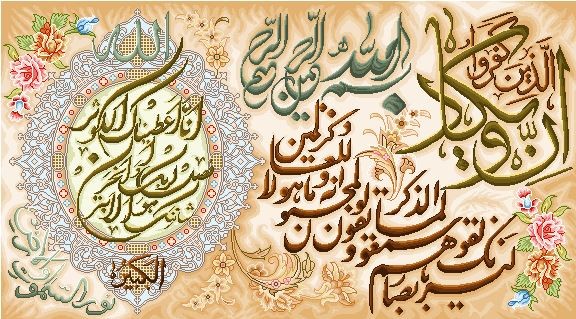 بسم الله الرحمن الرحيم
وإن يكاد الذين كفروا
ليزلقونك بأبصارهم
لما سمعوا الذكر
ويقولون إنه لمجنون
وما هو إلا ذكر
للعالمين
الله
إنا أعطيناك الكوثر
فصل لربك وانحر
إن شانئك هو الأبتر
نور السموات